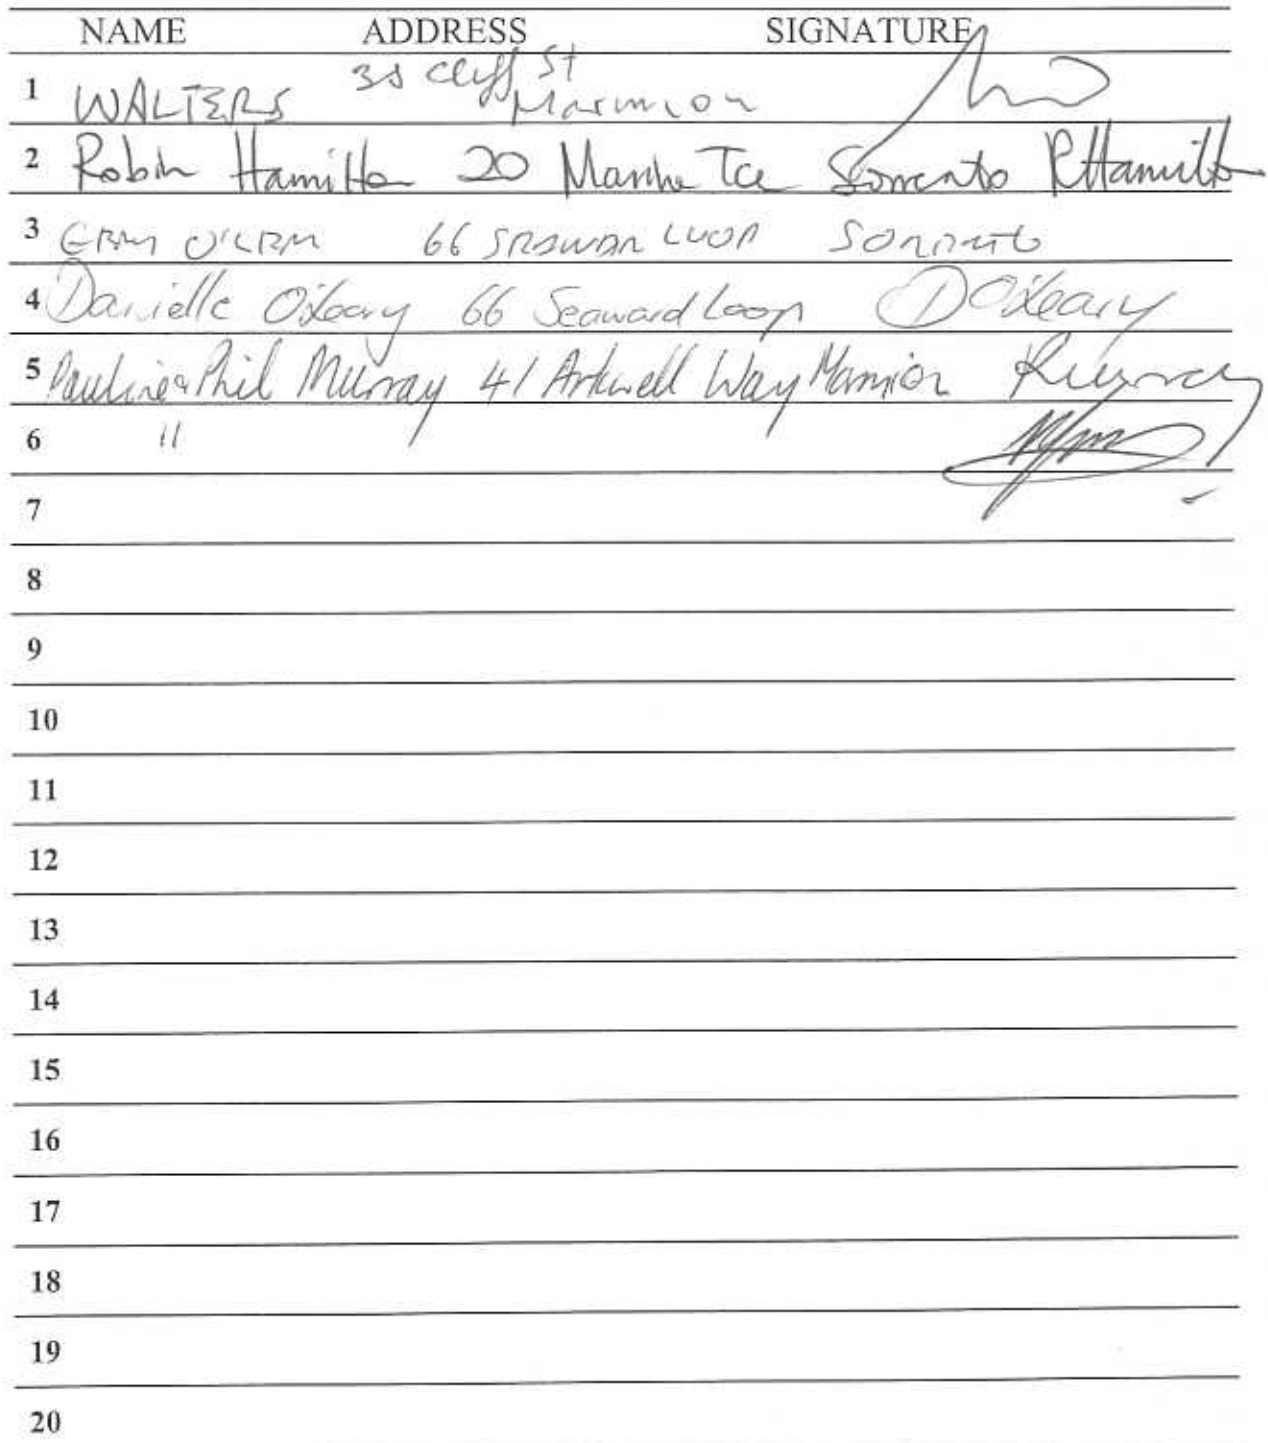 NAME ADDRESS SIGNATURE
1 WALTERS Cliff St
Marmion
2 Robin Hamilton 20 Marine Tce Sorrento RHamilton
3 66 LOOP SORRENTO
4 Danielle O'Leary 66 Seaward Loop DO'Leary
5 Pauline & Phil Murray 41 Arkwell Way Marmion
6 "
7
8
9
10
11
12
13
14
15
16
17
18
19
20